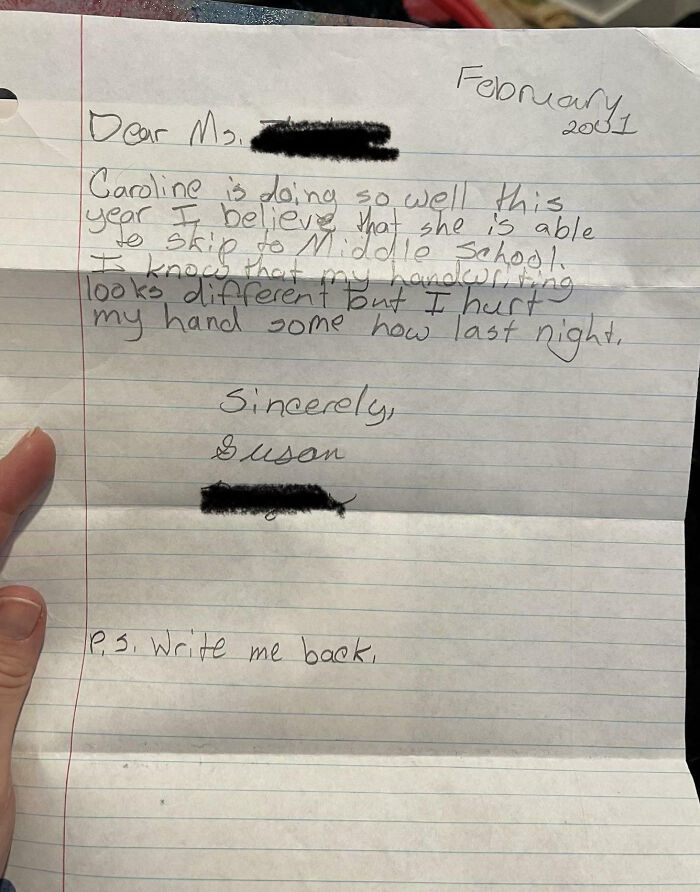 February
2001
Dear Ms.
Caroline is doing so well this
year I believe that she is able
to skip to Middle School.
I know that my handwriting
looks different but I hurt
my hand some how last night.
Sincerely,
Susan
P.S. Write me back.